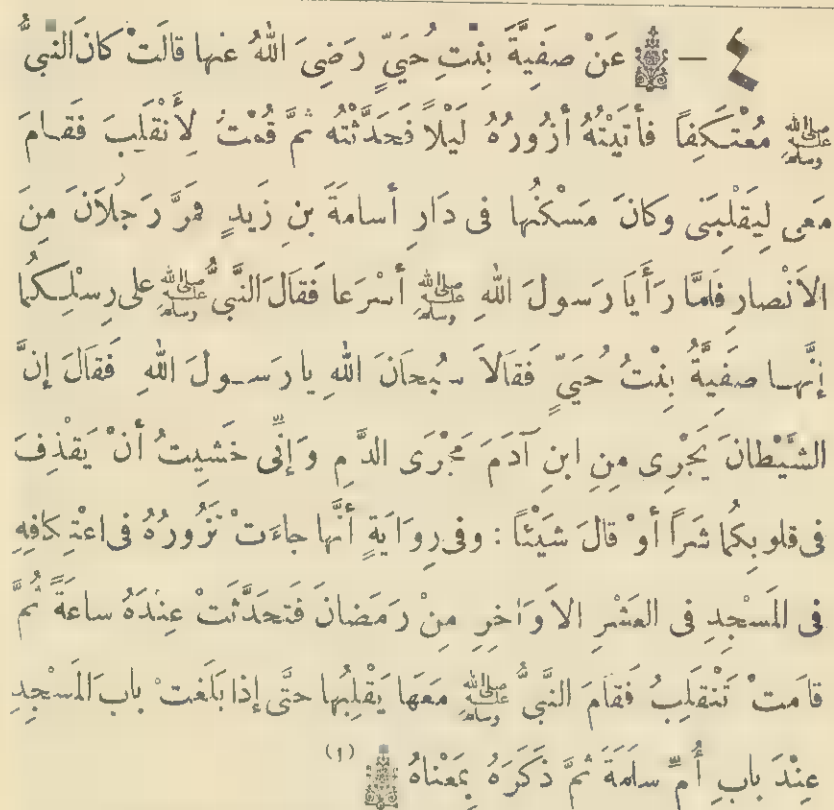 ٤ – عَنْ صَفِيَّةَ بِنْتِ حُيَيٍّ رَضِىَ اللهُ عنها قالَتْ كانَ النبىُّ
ﷺ مُعْتَكِفاً فأتَيْتُهُ أزُورُهُ لَيْلاً فَحَدَّثْتُه ثمَّ قُمْتُ لِأَنْقَلِبَ فَقامَ
مَعى لِيَقْلِبَنى وكانَ مَسْكَنُها فى دَارِ أُسامَةَ بنِ زَيدٍ فمَرَّ رَجُلاَنِ مِنَ
الأَنْصارِ فلمَّا رَأَيَا رَسولَ اللهِ ﷺ أسْرَعا فَقالَ النَّبىُّ ﷺ على رِسْلِكُما
إنَّها صَفِيَّةُ بِنْتُ حُيَيٍّ فَقالاَ سُبحَانَ اللهِ يا رَسولَ اللهِ فَقالَ إنَّ
الشَّيْطانَ يَجْرِى مِنِ ابنِ آدَمَ مَجْرَى الدَّمِ وَإنِّى خَشيِتُ أنْ يَقْذِفَ
فى قلوبِكُما شَرًا أوْ قالَ شَيْئاً : وفى رِوَايَةٍ أنَّها جاءَتْ تَزُورُهُ فى اعْتِكافِهِ
فى المَسْجِدِ فى العَشْرِ الأوَاخِرِ مِنْ رَمَضانَ فَتحَدَّثَتْ عِنْدَهُ ساعَةً ثُمَّ
قامَتْ تَنْقَلِبُ فَقامَ النَّبىُّ ﷺ مَعَها يَقْلِبُها حتَّى إذا بَلَغَت بابَ المَسْجِدِ
عِنْدَ بابِ أُمِّ سلَمَةَ ثمَّ ذَكَرَهُ بِمَعْناهُ (١)